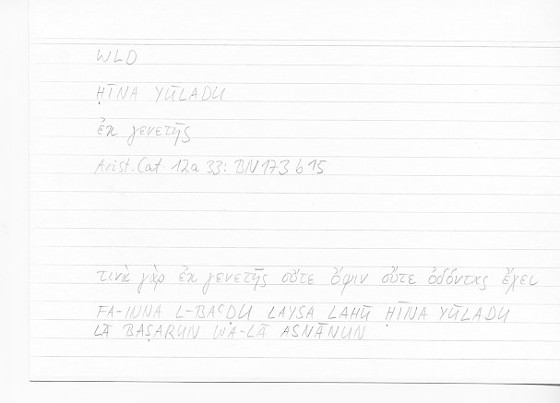 WLD
ḤĪNA YŪLADU
ἐκ γενετῆς
Arist. Cat. 12a 33: BN 173 b 15
τινὰ γὰρ ἐκ γενετῆς οὔτε ὄψιν οὔτε ὀδόντας ἔχει
FA-INNA L-BAʿḌU LAYSA LAHŪ ḤĪNA YŪLADU
LĀ BAṢARUN WA-LĀ ASNĀNUN